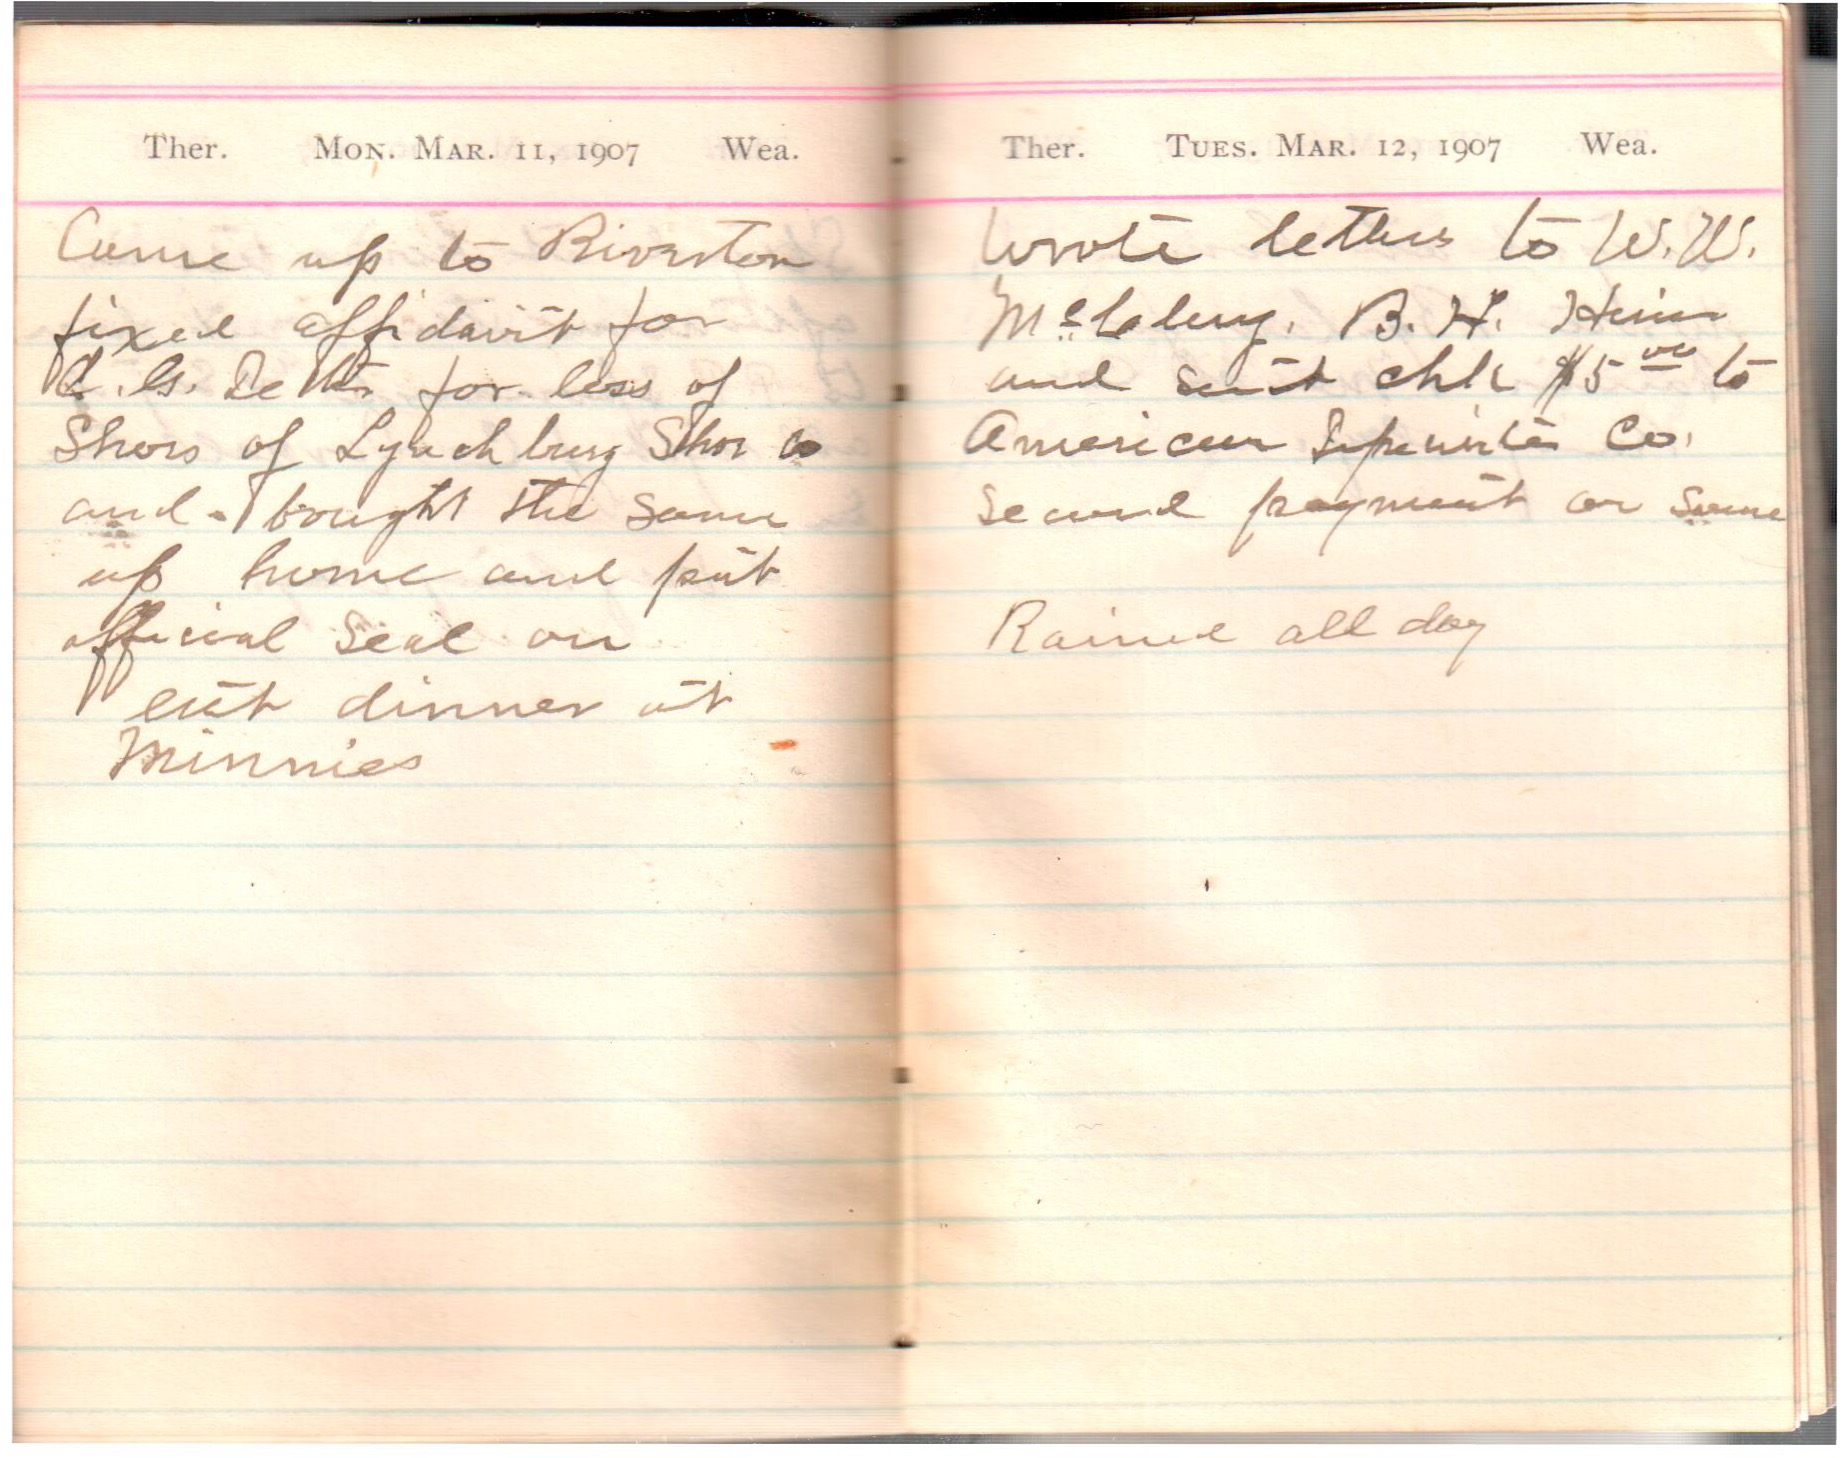 Ther. Mon. Mar. 11, 1907 Wea.
Came up to Riverton
fixed affidavit for
for loss of
Shoes of Lynchburg Shoe Co
and bought the same
up home and put
official Seal on
eat dinner at
Minnies
Ther. Tues. Mar. 12, 1907 Wea.
Wrote letters to W. W.
B. H.
and sent chk $5 00 to
American Co.
second payment on same
Rained all day